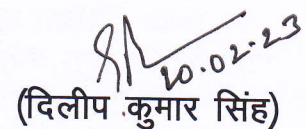 20.02.23
(दिलीप कुमार सिंह)